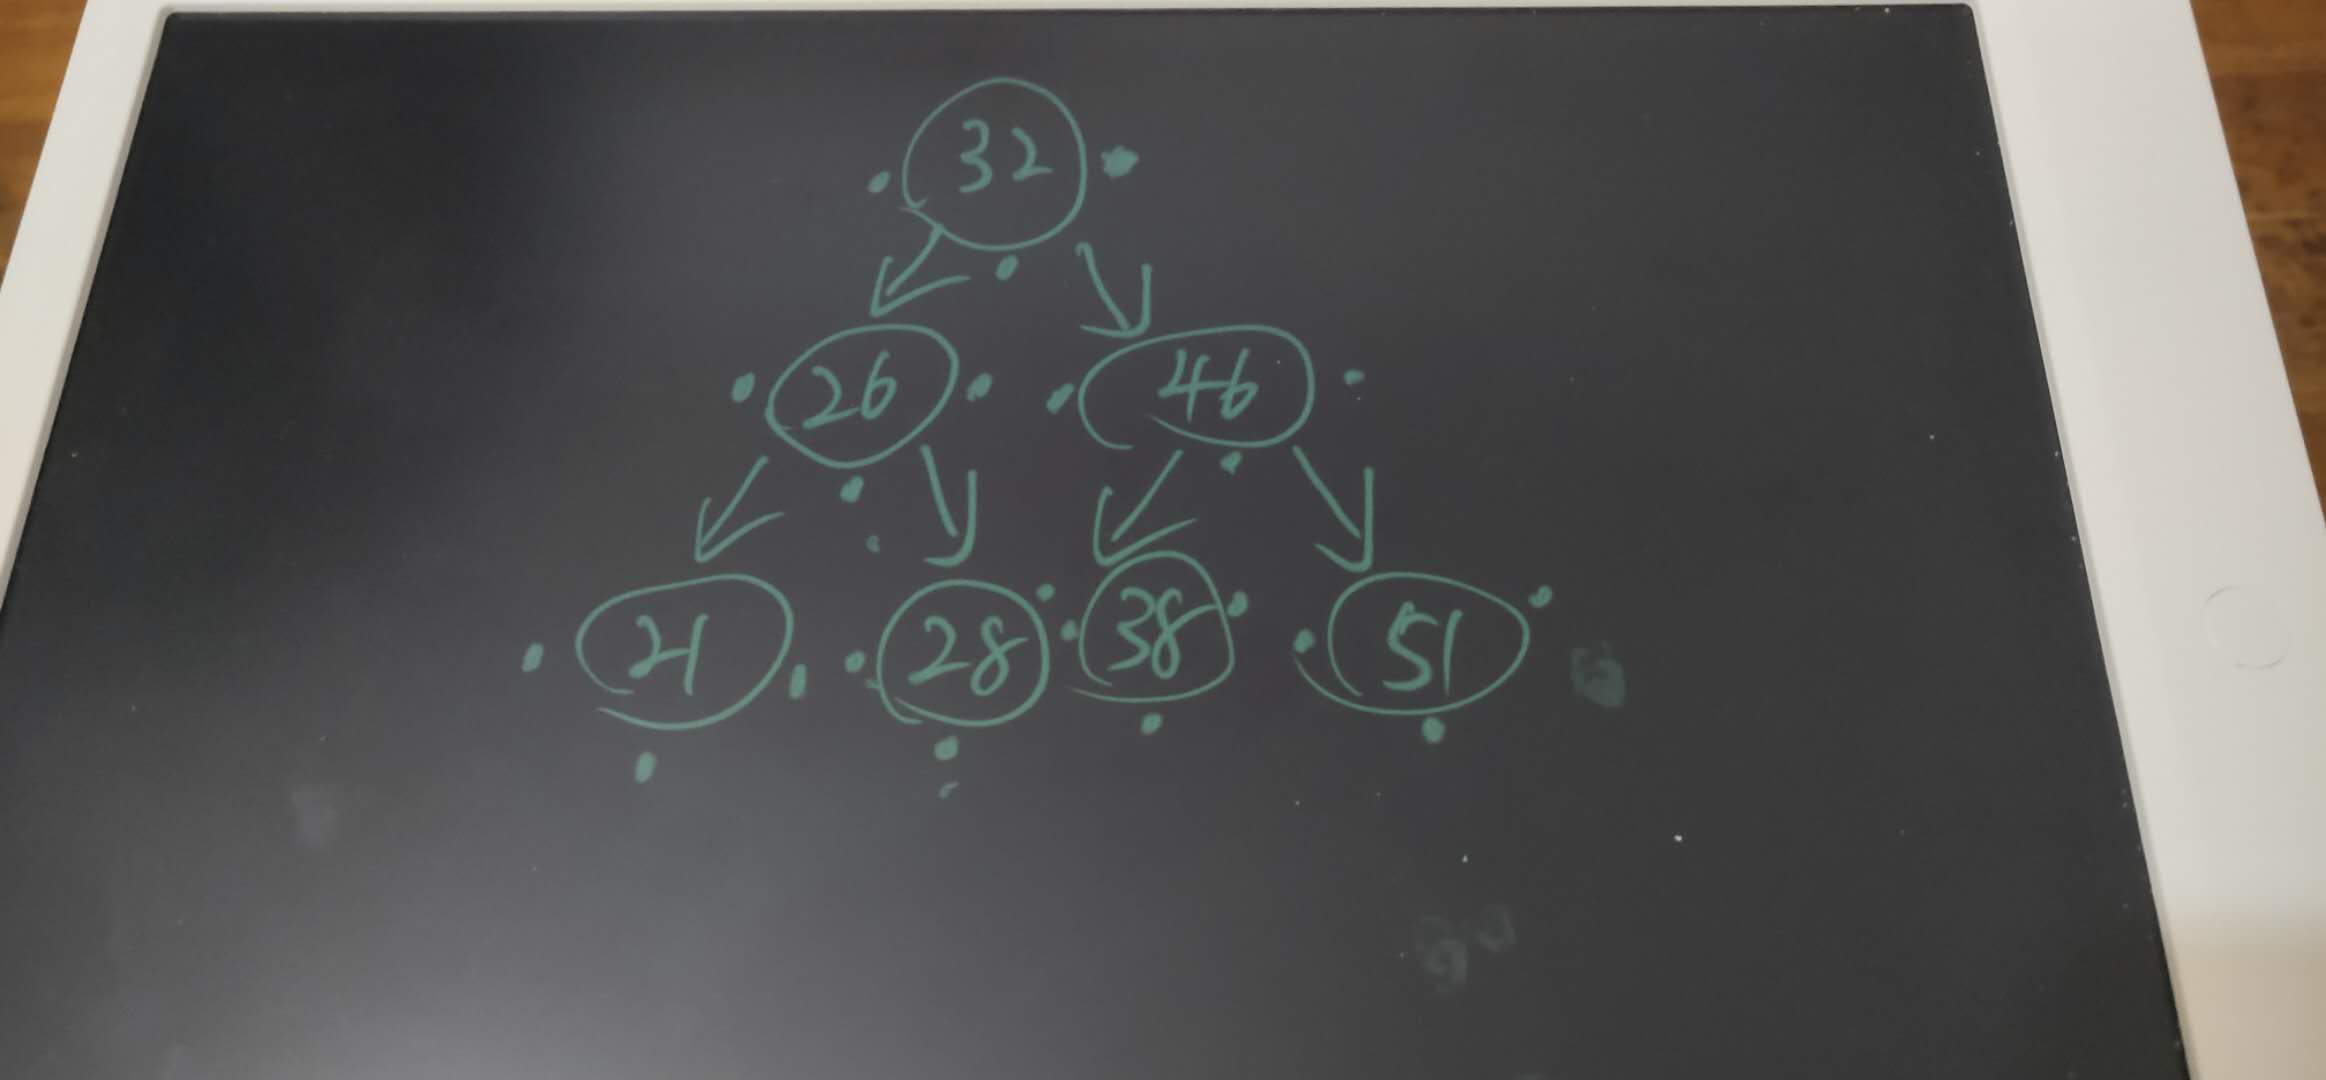 32
26 46
21 28 38 51